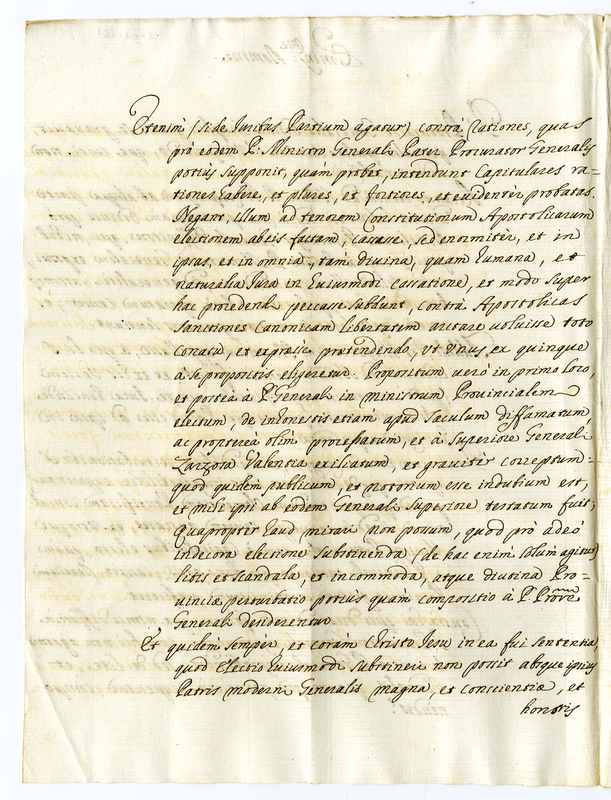 Etenim (si de Juribus Partium agatur) contrà Rationes, quas
pro eodem P. Ministro Generali Pater Procurator Generalis
potius supponit, quàm probet, intendunt Capitulares ra=
tiones habere, et plures, et fortiores, et evidentèr probatas.
Negant, illum ad tenorem Constitutionum Apostolicarum
electionem ab eis factam, cassasse, sed enormitèr, et in
ipsas, et in omnia, tàm divina, quam humana, et
naturalia Jura in huiusmodi cassatione, et modo super
hac procedendi peccasse subdunt, contrà Apostolicas
Sanctiones Canonicam libertatem arctare voluisse toto
conatu, et expresse prætendendo, vt vnus ex quinque
à se propositis eligeretur. Propositum verò in primo loco,
et posteà à P. Generali in ministrum Provincialem
electum, de inhonestis etiam apud sæculum diffamatum,
ac proptereà olim processatum, et à Superiore Generali
Zarzosa Valentia exiliatum, et gravitèr correptum=
quod quidem publicum, et notorium esse indubium est,
et mihi ipsi ab eodem Generali Superiore testatum fuit;
Quapropter haud mirari non possum, quod prò adeò
indecora electione substinenda (de hac enim solùm agitur)
litis et scandala, et incommoda, atque diutina Pro=
vinciæ perturbatio potius quàm compositio à P. Prore
Generali desiderentur
Et quidem sempèr, et coràm Christo Jesu in ea fui sententia,
quod Electio huiusmodi substineri non possit absque ipsius
Patris moderni Generalis magna, et conscientiæ, et
honoris